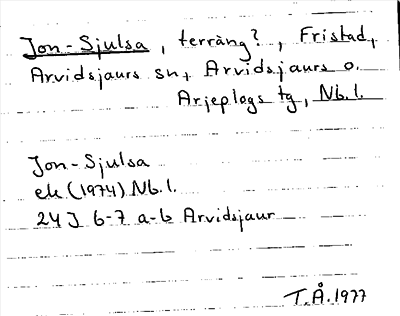 Jon-Sjulsa, terräng?, Fristad,
Arvidsjaurs sn, Arvidsjaurs o.
Arjeplogs tg, Nb.l.
Jon-Sjulsa
ek (1974) Nb.l.
24J 6-7 a-b Arvidsjaur
T.Å. 1977